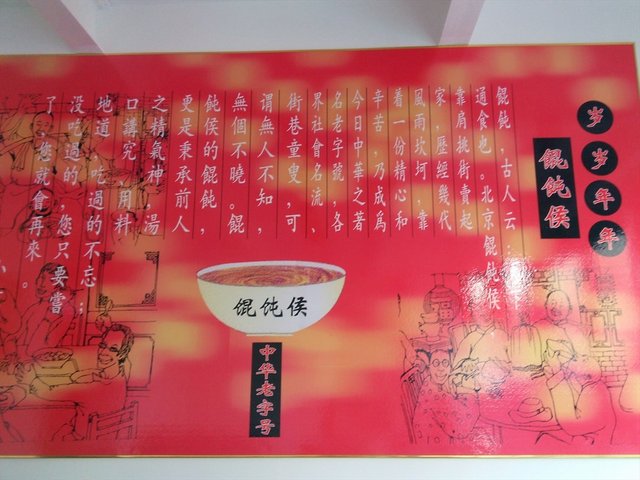 岁岁年年
馄饨侯
餛飩,古人云:
通食也。北京餛飩侯
靠肩挑街賣起
家,歷經幾代
風雨坎坷,靠
着一份精心和
辛苦,乃成爲
今日中華之著
名老字號,各
界社會名流、
街巷童叟,可
谓無人不知,
無個不曉。餛
飩侯的餛飩,
更是秉承前人
之精氣神,湯
口講究,用料
地道,吃過的不忘;
没吃過的,您只要嘗
了,您就會再來。
馄饨侯
中华老字号